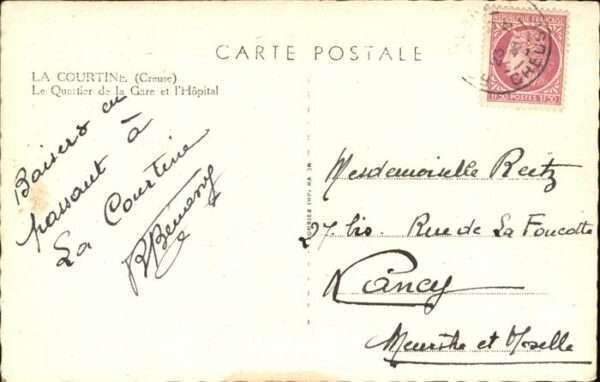 CARTE POSTALE
LA COURTINE. (Creuse)
Le Quartier de la Gare et l'Hôpital
Baisers en
passant à
La Courtine
Mesdemoiselle Reitz
27 bis. Rue de La Foucotte
Nancy
Meurthe et Moselle
REPUBLIQUE FRANÇAISE
1F50 POSTES 1F50